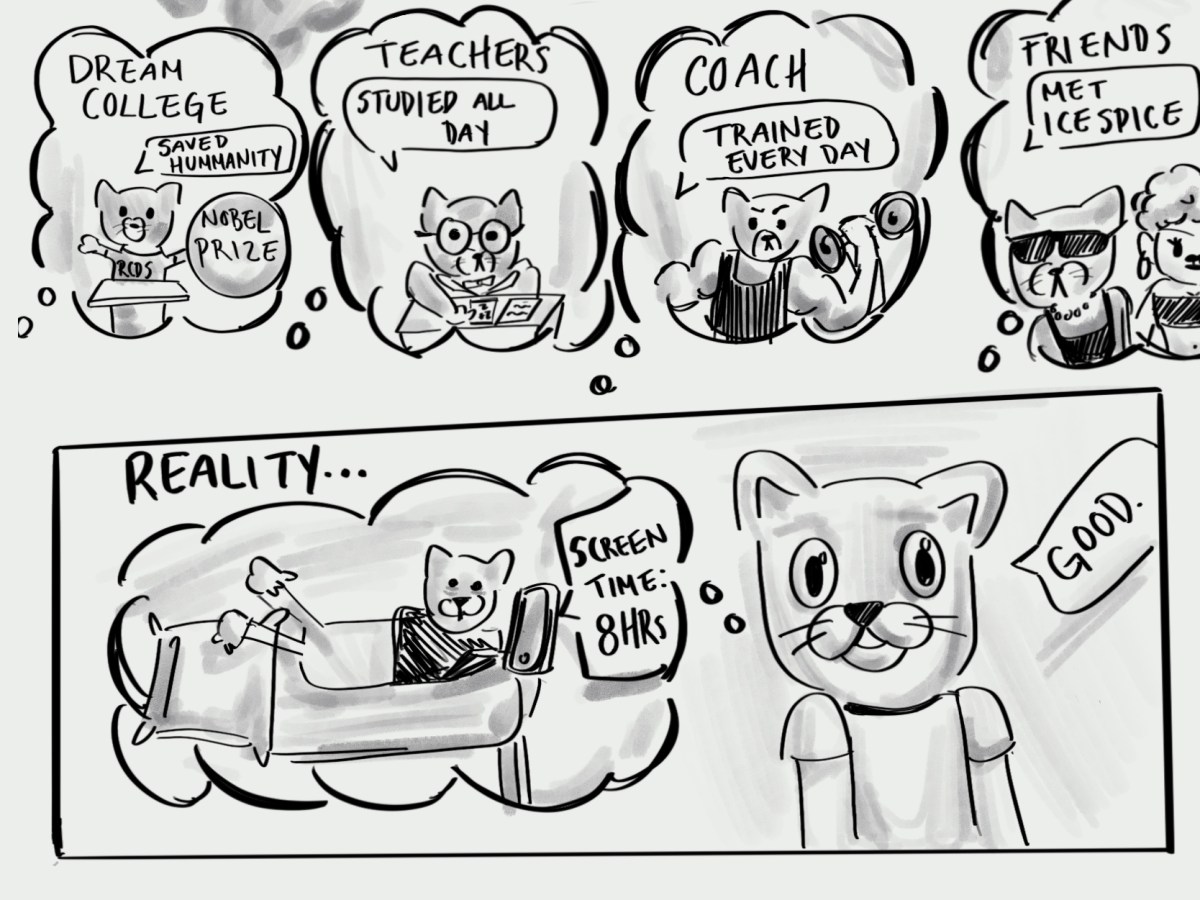 DREAM
COLLEGE
SAVED
HUMMANITY
NOBEL
PRIZE
RCDS
TEACHERS
STUDIED ALL
DAY
COACH
TRAINED
EVERY DAY
FRIENDS
MET
ICE SPICE
REALITY...
SCREEN
TIME:
8HRS
GOOD.